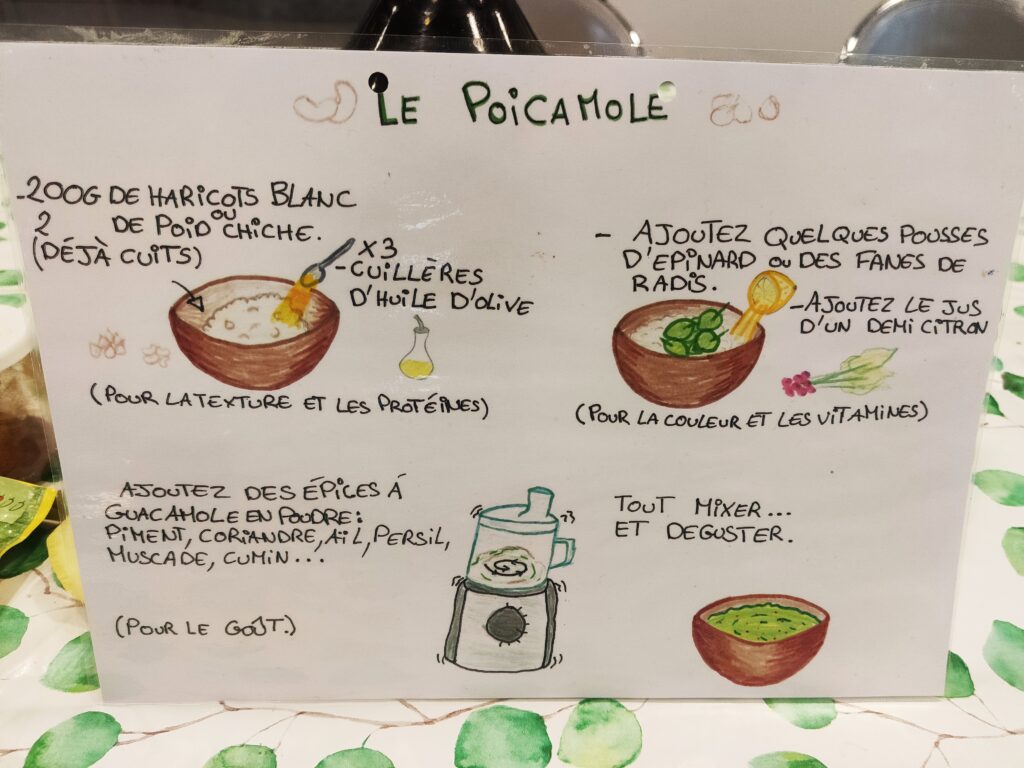 LE POICAMOLE
-200G DE HARICOTS BLANC
OU
2 DE POID CHICHE.
(DÉJÀ CUITS)
X3
-CUILLÈRES
D'HUILE D'OLIVE
(POUR LA TEXTURE ET LES PROTÉINES)
- AJOUTEZ QUELQUES POUSSES
D'EPINARD OU DES FANES DE
RADIS.
-AJOUTEZ LE JUS
D'UN DEMI CITRON
(POUR LA COULEUR ET LES VITAMINES)
AJOUTEZ DES ÉPICES Á
GUACAMOLE EN POUDRE:
PIMENT, CORIANDRE, AIL, PERSIL,
MUSCADE, CUMIN...
(POUR LE GOÛT.)
TOUT MIXER...
ET DEGUSTER.